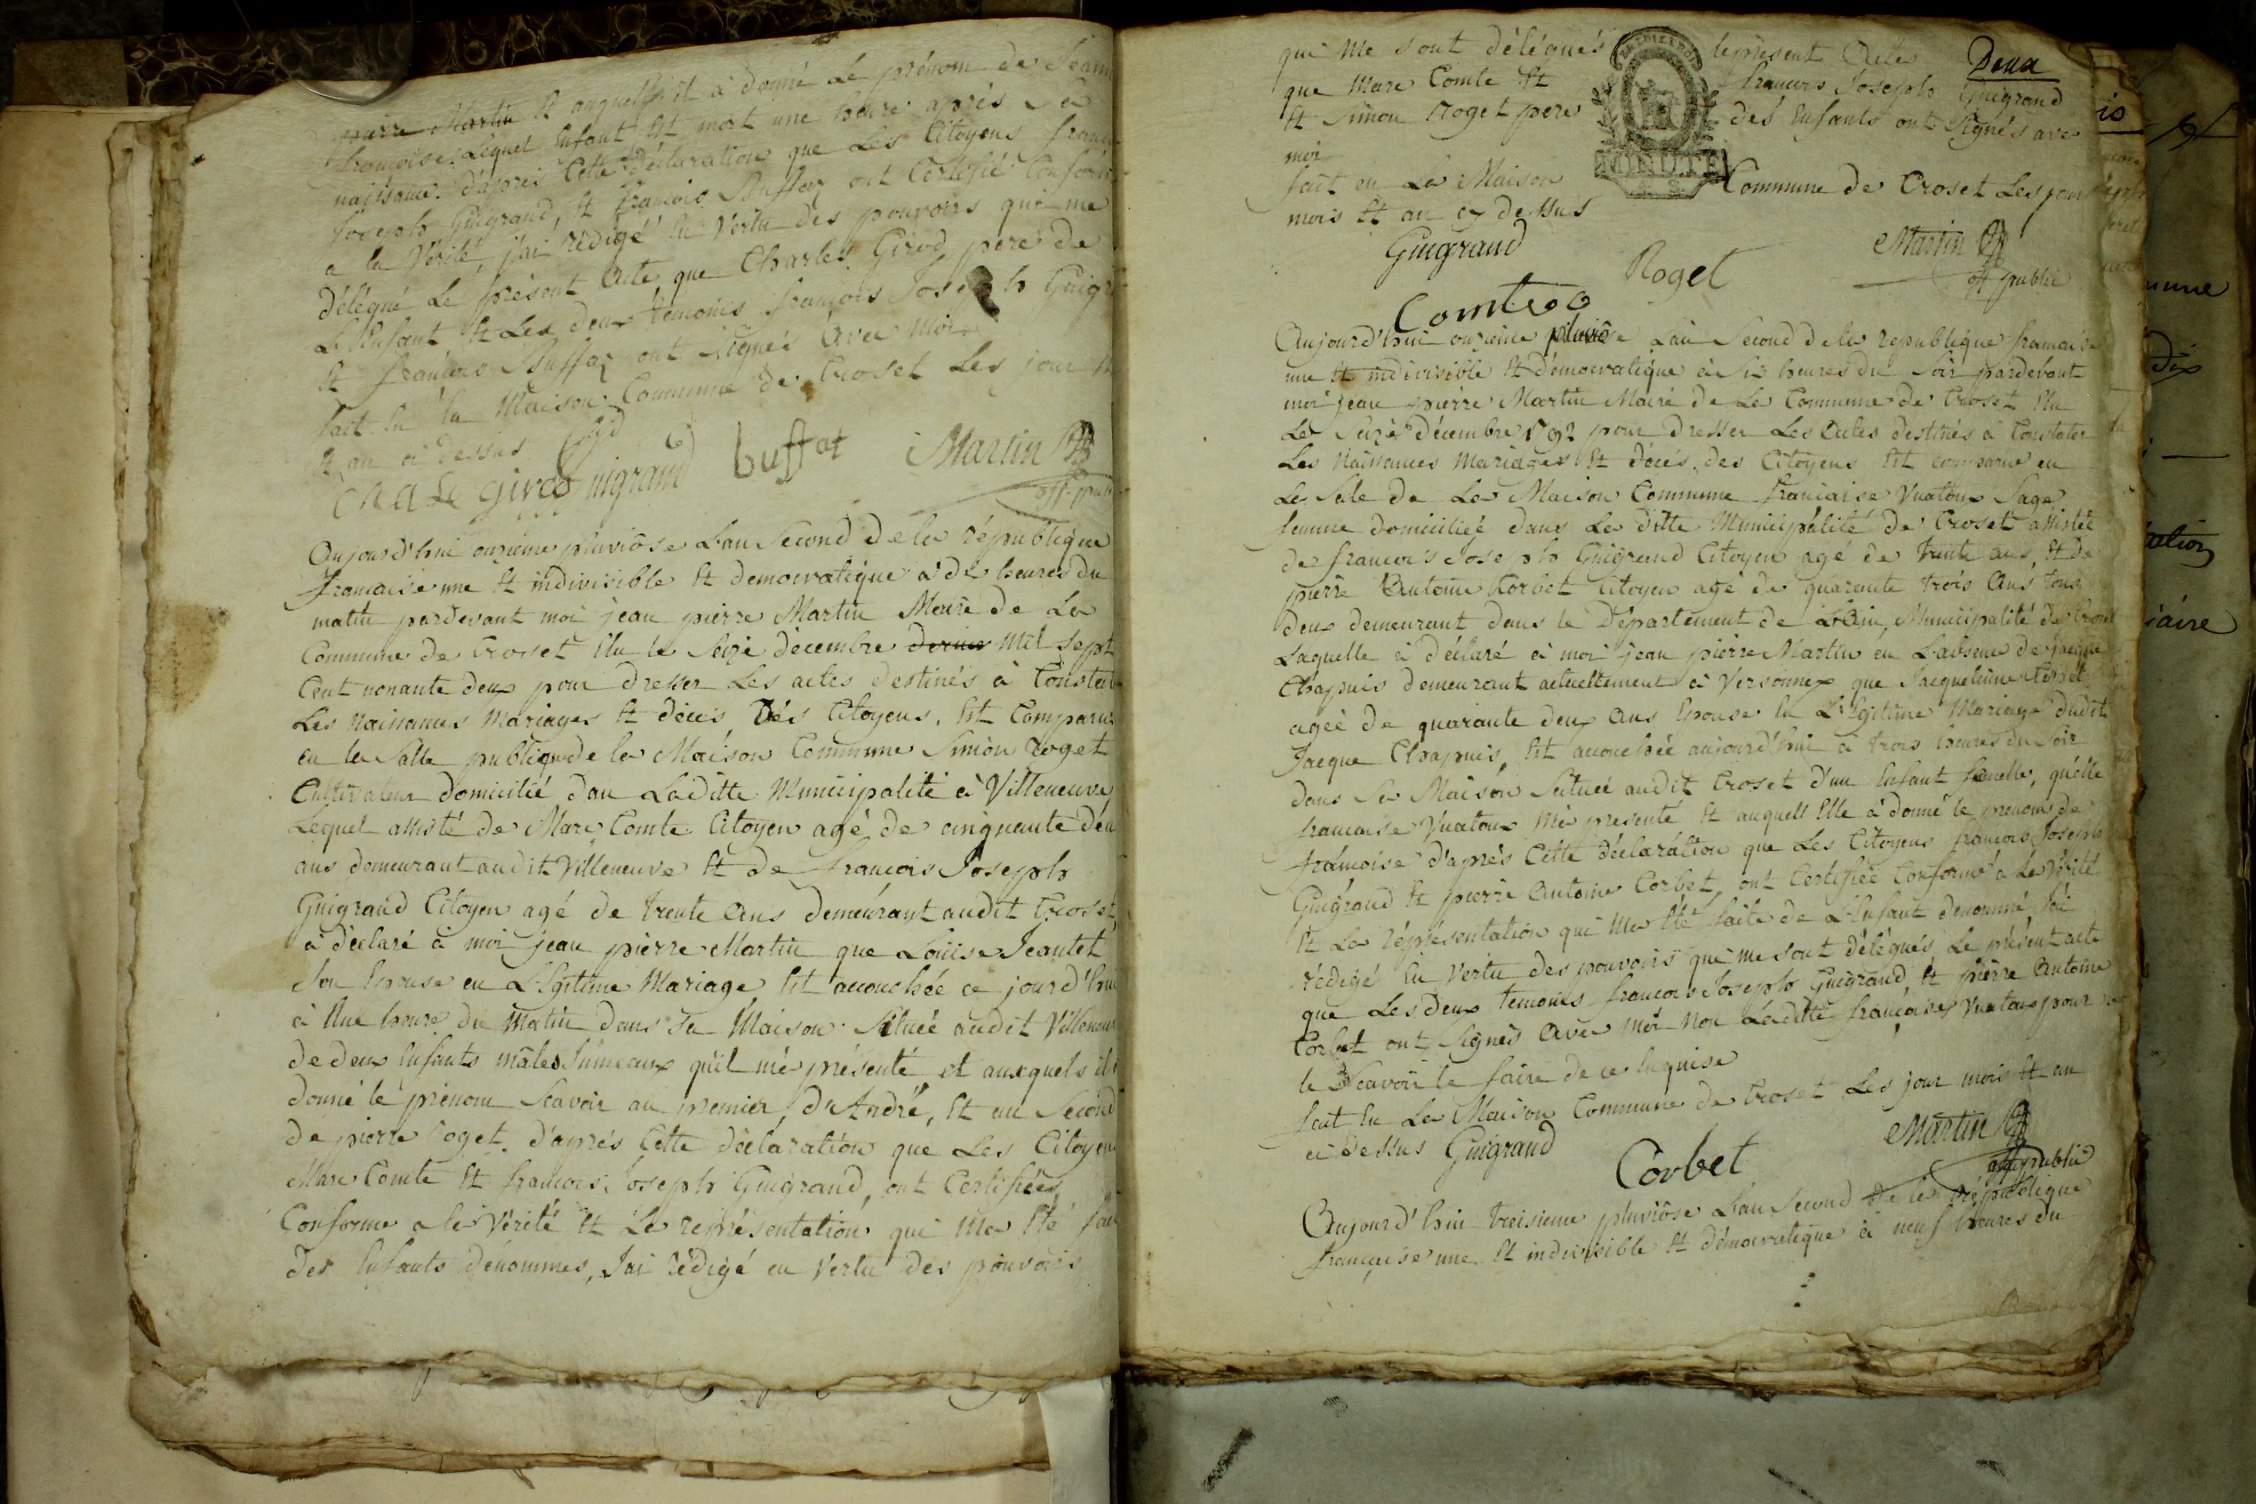 pierre Martin Et auquel il à donné Le prénom de Jeanne
françoise. Lequel Enfant Est mort une heure après Sa
naissance. d'après Cette déclaration que Les Citoyens françois
Joseph Guigrand, Et françois Buffaz ont Certifié Conforme
a la Vérité, j'ai rédigé En Vertu des pouvoirs qui me
délégué Le présent Acte que Charles Girod pere de
L'Enfant Et Les deux témoins françois Joseph Guigrand
Et françois Buffaz ont Signés Avec moi
fait En la Maison Commune de Croset Les jour
Et an ci dessus
Girod Guigrand buffat Martin
off. public
Aujourd'hui onzieme pluviôse L'an Second de la république
francaise une Et indivisible Et democratique à dix heures du
matin pardevant moi jean pierre Martin Maire de La
Commune de Croset Elu le Seize décembre dernier Mil Sept
Cent nonante deux pour dresser Les actes destinés à Constater
Les naissances Mariages Et décès Des Citoyens, Est Comparu
en la Salle publique de la Maison Commune Simon Roget
Cultivateur domicilié dan Laditte Municipalité à Villeneuve
Lequel assisté de Marc Comte Citoyen agé de cinquante deux
ans demeurant audit Villeneuve Et de francois Joseph
Guigrand Citoyen agé de trente Ans demeurant audit Croset
à déclaré à moi jean pierre Martin que Louise Jeantet
Son Epouse en Légitime Mariage Est accouchée ce jourd'hui
à Une heure du Matin dans Sa Maison Située audit Villeneuve
de deux Enfants mâles Jumeaux qu'il m'a présenté et auxquels il
donné le prénom Scavoir au premier, d'André, Et au Second
de pierre roget. d'après Cette déclaration que Les Citoyens
Marc Comte Et francois Joseph Guigrand, ont Certifiées
Conforme a la Vérité Et La représentation qui Ma Eté faite
des Enfants dénommes, J'ai rédigé en Vertu des pouvoirs
qui me sont délégués le present Acte Deux
que Marc Comte Et francois Joseph Guigrand
Et Simon Roget pere des Enfants ont Signés avec
moi
fait en La Maison Commune de Croset Les jour
mois Et an cy dessus
Guigrand Roget Martin
off public
Comte
Aujourd'hui onzieme pluviôse L'an Second de la republique francaise
une Et indivisible Et démocratique à Six heures du Soir pardevant
moi jean pierre Martin Maire de La Commune de Croset Elu
Le Seize décembre 1792 pour dresser Les Actes destinés à Constater
Les Naissances Mariages Et décès des Citoyens Est comparue en
La Sale de La Maison Commune francaise Vuatoux Sage
femme domiciliée dans La ditte Municipalité de Croset assistée
de francois Joseph Guigrand Citoyen agé de trente ans, Et de
pierre Antoine Corbet Citoyen agé de quarante trois Ans tous
deux demeurant dans le Département de L'Ain, Municipalité de Croset
Laquelle à déclaré à moi jean pierre Martin en L'absence de jacque
Chapuis demeurant actuellement à Versonnex que Jacquelinne Corbet
agée de quarante deux ans Epouse En Légitime Mariage dudit
Jacque Chapuis, Est accouchée aujourd'hui à trois heures du Soir
dans Sa Maison Située audit Croset d'un Enfant femelle, qu'elle
francaise Vuatoux m'a presenté Et auquell Elle à donné le prenom de
francoise d'après Cette déclaration que Les Citoyens francois Joseph
Guigrand Et pierre Antoine Corbet, ont Certifiée Conforme à La Vérité
Et La représentation qui Ma Eté faite de L'Enfant denommé, J'ai
rédigé En Vertu des pouvoirs qui me sont délégués Le présent acte
que Les deux temoins francois Joseph Guigrand, Et pierre Antoine
Corbet ont Signés Avec moi Non Laditte francaise Vuatoux pour ne
le Scavoir le faire de ce Enquise
fait En La Maison Commune de Croset Les jour mois Et an
ci dessus Guigrand Corbet Martin
off public
Aujourd'hui treisieme pluviôse L'an Second de la république
française une Et indivisible Et démocratique à neuf heures du